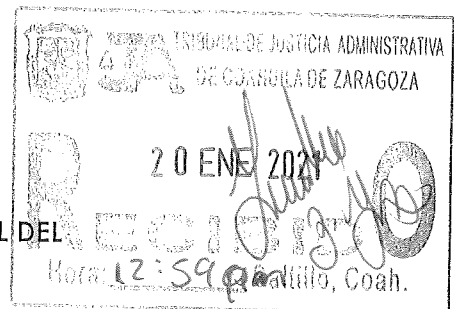 TRIBUNAL DE JUSTICIA ADMINISTRATIVA
DE COAHUILA DE ZARAGOZA
20 ENE 2021
L DEL
RECIBIDO
Hora: 12:59 Saltillo, Coah.